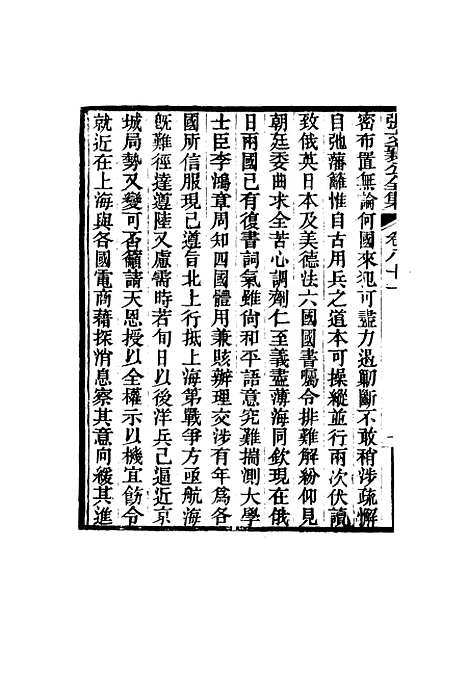 張文襄公全集 卷八十一
密布置無論何國來犯可盡力遏勦斷不敢稍涉疏懈
自弛藩籬惟自古用兵之道本可操縱並行兩次伏讀
致俄英日本及美德法六國國書囑令排難解紛仰見
朝廷委曲求全苦心調劑仁至義盡薄海同欽現在俄
日兩國已有復書詞氣雖尙和平語意究難揣測大學
士臣李鴻章周知四國體用兼賅辦理交涉有年爲各
國所信服現已遵旨北上行抵上海第戰爭方亟航海
旣難徑達遵陸又慮需時若旬日以後洋兵已逼近京
城局勢又變可否籲請天恩授以全權示以機宜飭令
就近在上海與各國電商藉探消息察其意向緩其進